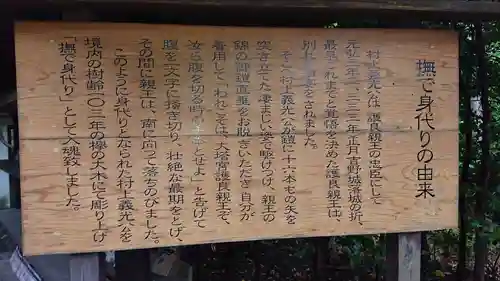 撫で身代りの由来
村上義光公は、護良親王の忠臣にして
元弘三年一三三三年正月吉野城落城の折、
最早これまでと覚悟を決めた護良親王は、
別れの酒宴をされました。
そこへ村上義光公が鎧に十六本もの矢を
突き立てた凄まじい姿で駆けつけ、親王の
錦の御鎧直垂をお脱ぎいただき自分が
着用して「われこそは、大塔宮護良親王ぞ、
汝ら腹を切る時の手本とせよ」と告げて
腹を一文字に掻き切り、壮絶な最期をとげ、
その間に親王は、南に向って落ちのびました。
このように身代りとなられた村上義光公を
境内の樹齢一〇三年の欅の大木にて彫り上げ
「撫で身代り」として入魂致しました。